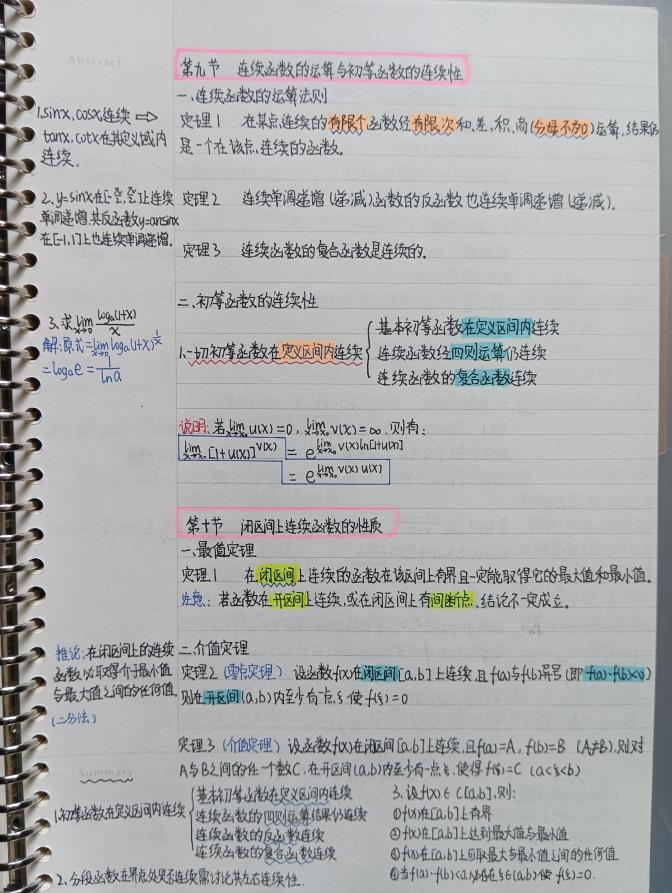 Abstract
第九节 连续函数的运算与初等函数的连续性
一、连续函数的运算法则
定理1 在某点连续的有限个函数经有限次和、差、积、商(分母不为0)运算,结果仍
是一个在该点连续的函数。
1.sinx, cosx连续 ⇒
tanx, cotx在其定义域内
连续。
定理2 连续单调递增(递减)函数的反函数也连续单调递增(递减)。
2. y=sinx在[-π/2, π/2]上连续
单调递增,其反函数y=arcsinx
在[-1,1]上也连续单调递增。
定理3 连续函数的复合函数是连续的。
二、初等函数的连续性
1.一切初等函数在定义区间内连续
基本初等函数在定义区间内连续
连续函数经四则运算仍连续
连续函数的复合函数连续
3.求lim x→0 loga(1+x)/x
解:原式=lim x→0 loga(1+x)^(1/x)
=logae=1/lna
说明:若lim x→x₀ u(x)=0, lim x→x₀ v(x)=∞.则有:
lim x→x₀ [1+u(x)]^v(x) = e^(lim x→x₀ v(x)ln[1+u(x)])
= e^(lim x→x₀ v(x)u(x))
第十节 闭区间上连续函数的性质
一、最值定理
定理1 在闭区间上连续的函数在该区间上有界且一定能取得它的最大值和最小值。
注意:若函数在开区间上连续,或在闭区间上有间断点,结论不一定成立。
二、介值定理
定理2(零点定理) 设函数f(x)在闭区间[a,b]上连续,且f(a)与f(b)异号(即f(a)·f(b)<0)
则在开区间(a,b)内至少有一点ξ使f(ξ)=0
推论:在闭区间上的连续
函数必取得介于最小值
与最大值之间的任何值.
(二分法)
定理3(介值定理) 设函数f(x)在闭区间[a,b]上连续,且f(a)=A, f(b)=B (A≠B).则对
A与B之间的任一个数C,在开区间(a,b)内至少有一点ξ,使得f(ξ)=C (a<ξ<b)
Summary
1.初等函数在定义区间内连续
基本初等函数在定义区间内连续
连续函数的四则运算结果仍连续
连续函数的反函数连续
连续函数的复合函数连续
2.分段函数在界点处是否连续需讨论其左右连续性.
3.设f(x)∈C[a,b],则:
①f(x)在[a,b]上有界
②f(x)在[a,b]上达到最大值与最小值
③f(x)在[a,b]上可取最大与最小值之间的任何值
④当f(a)·f(b)<0时,必存在ξ∈(a,b)使f(ξ)=0.